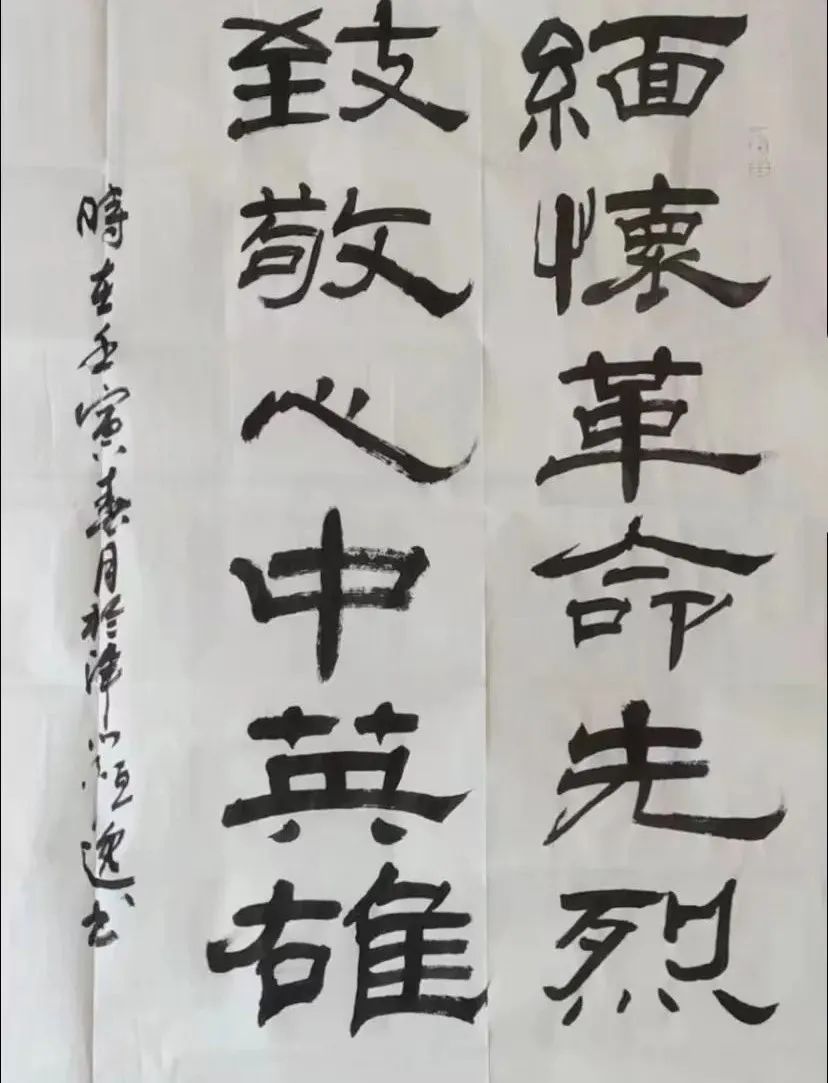 緬懷革命先烈
致敬心中英雄
時在壬寅春月於津
恒逸书